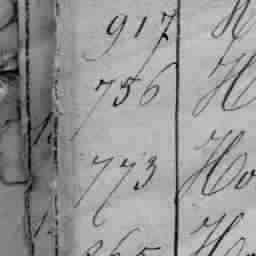 917 H
756 H
773 Ho
365 H